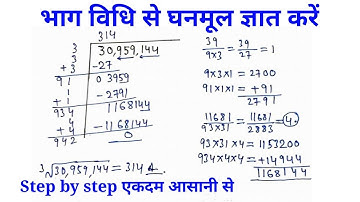 भाग विधि से घनमूल ज्ञात करें
314
3 30,959,144
3
+3 -27
91 03959
1
1 -2791
934 1168144
4
+4 -1168144
942 0
∛30,959,144 = 314 A
39/9 = 39/27 = 1
9×3×1 = 2700
91×1×1 = +91
2791
11681/93×31 = 11681/2883 = 4
93×31×4 = 1153200
934×4×4 = +14944
1168144
Step by step एकदम आसानी से